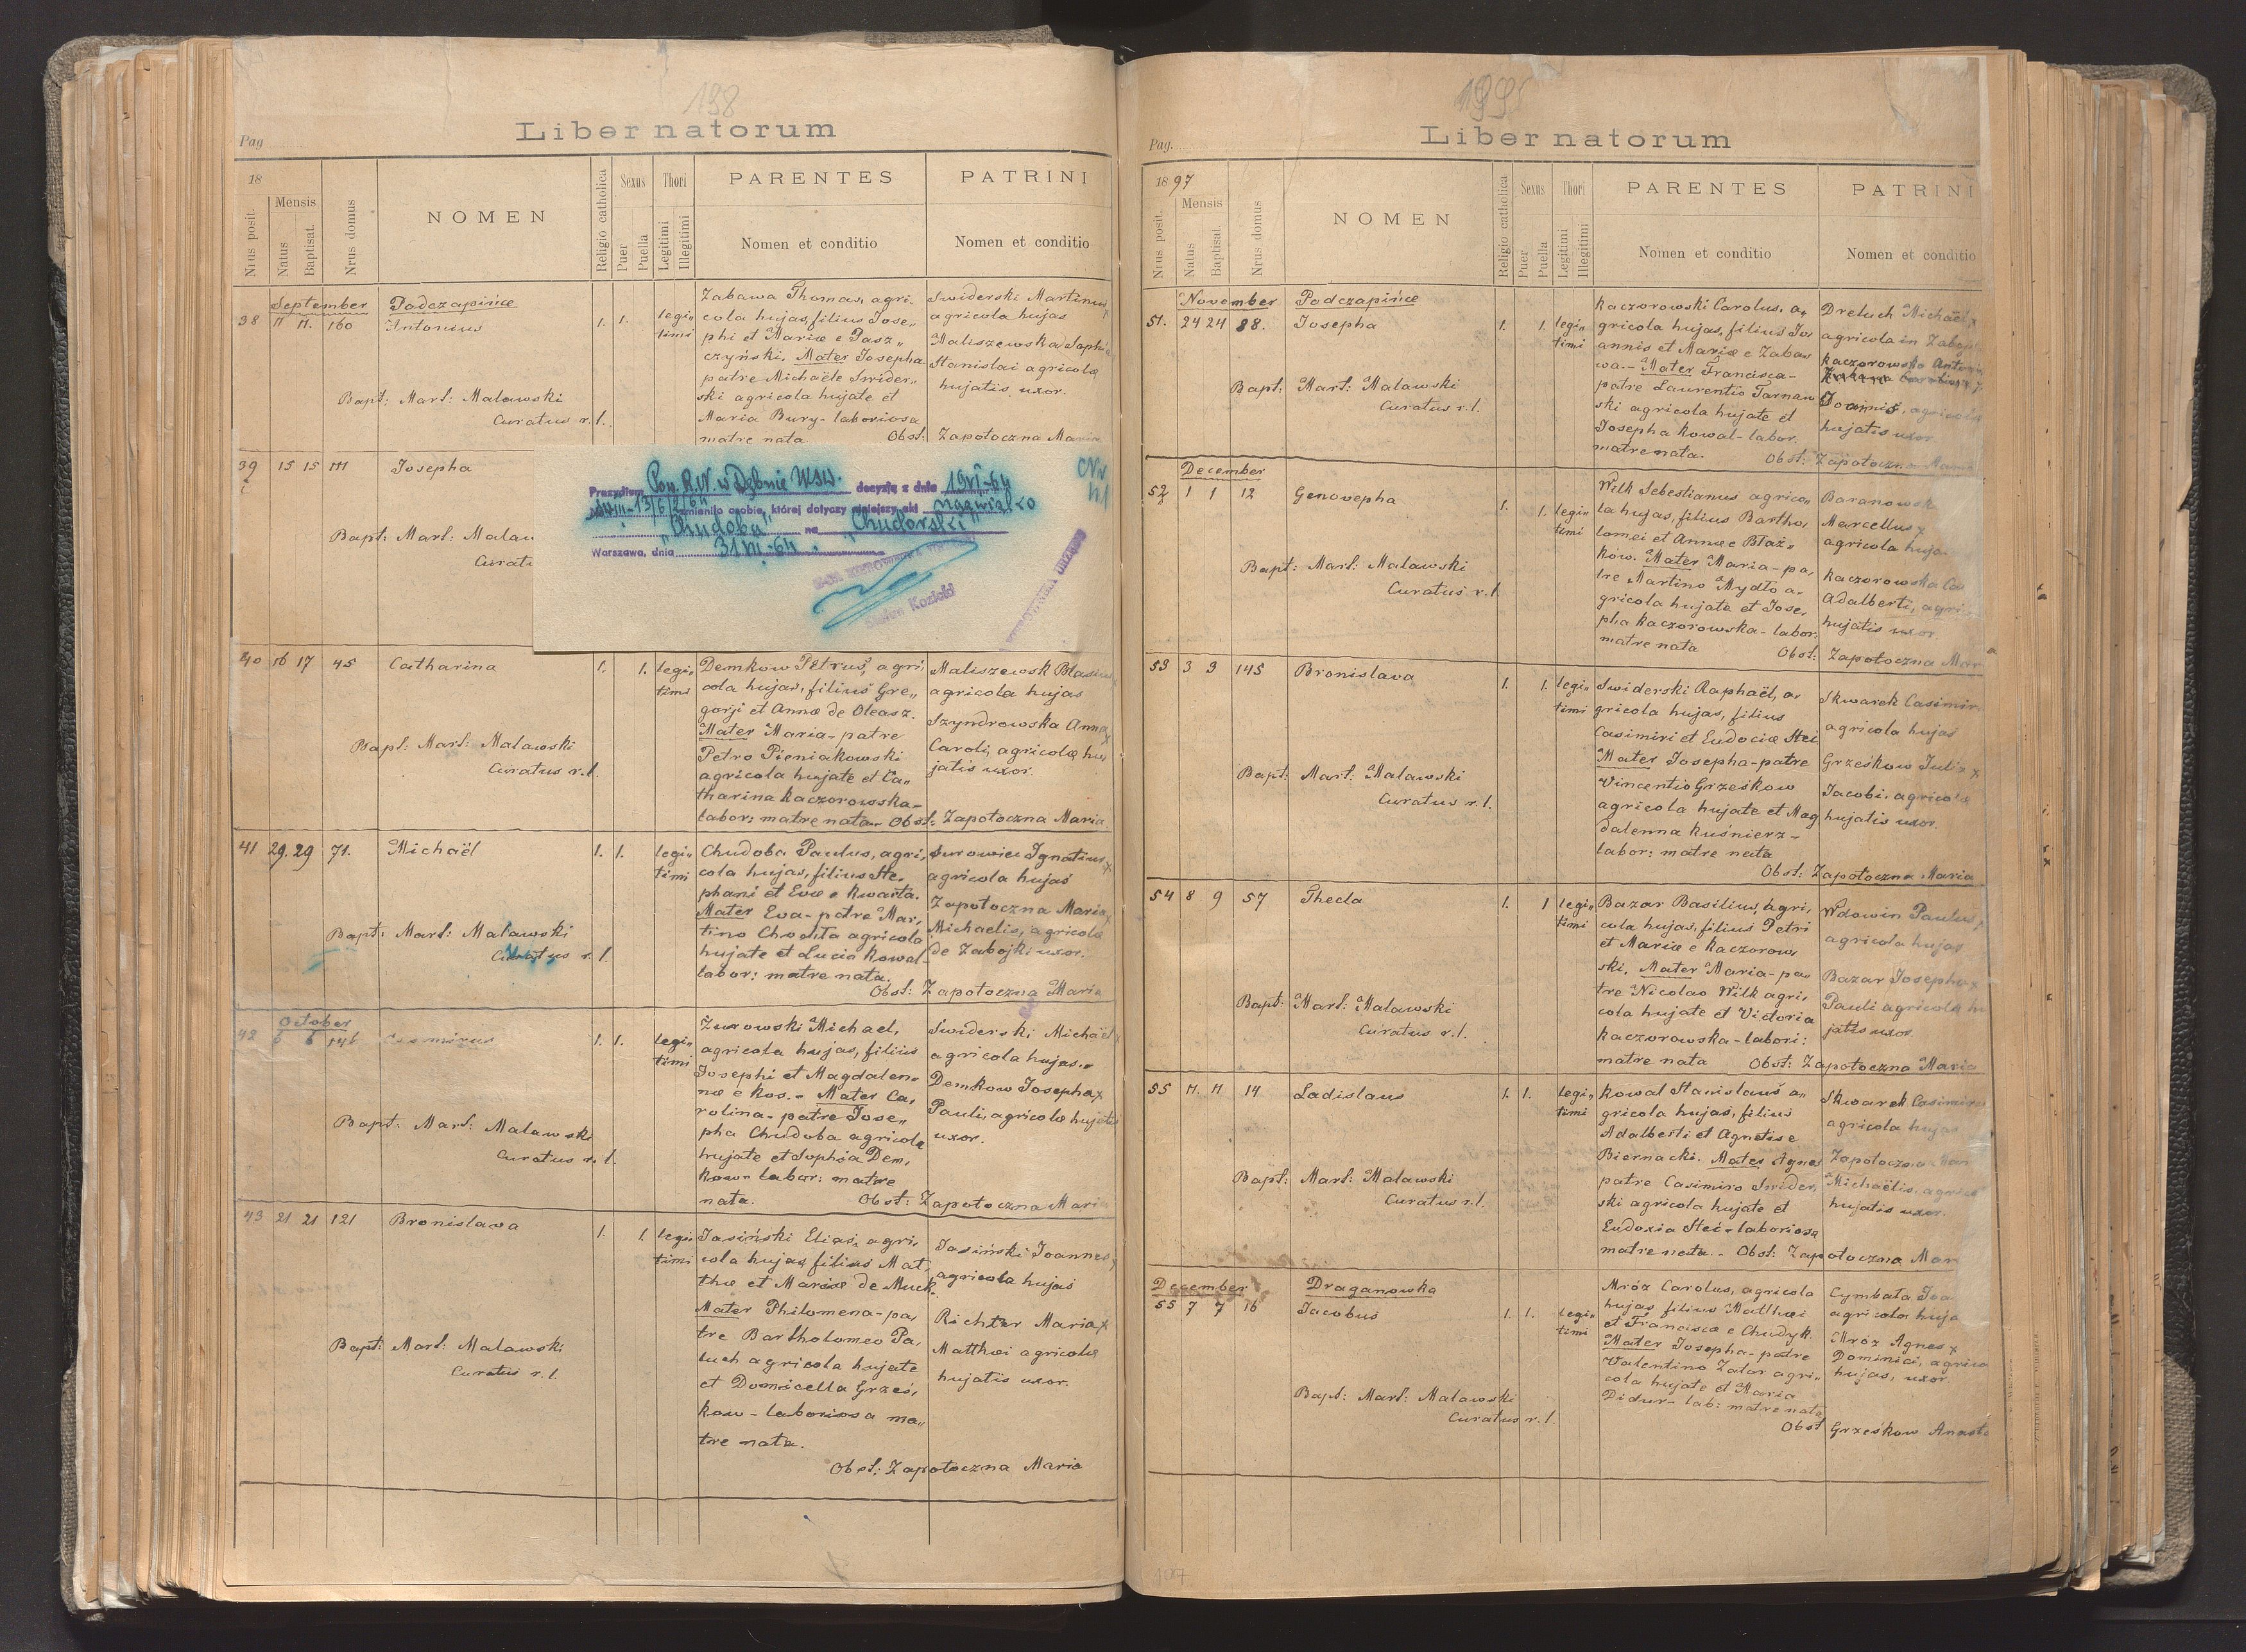 198
Pag
Liber natorum
18
Nrus posit.
Mensis
Natus
Baptisat.
Nrus domus
NOMEN
Religio catholica
Sexus
Puer
Puella
Thori
Legitimi
Illegitimi
PARENTES
Nomen et conditio
PATRINI
Nomen et conditio
September
Podczapińce
38 11 11. 160
Antonius
1. 1.
legi„
timi
Zabawa Thomas, agri„
cola hujas, filius Jose„
phi et Mariæ e Pasz„
czyński. Mater Josepha
patre Michaële Swider„
ski agricola hujate et
Maria Bury - laboriosa
matre nata
Swiderski Martinus
agricola hujas
Maliszewska Sophie
Stanislai agricolæ
hujatis uxor.
Obst: Zapotoczna Maria
Bapt: Mart: Malawski
Curatus r. l.
39 15 15 111
Josepha
Bapt: Mart: Malaw
Curatu
Prezydium Pow. R.N. w Dębnie WSW. decyzją z dnia 19VI-64
zmieniło osobie, której dotyczy niniejszy akt nazwisko
"Chudoba" na "Chudorski"
Warszawa, dnia 31 VII-64.
Kozicki
40 16 17 45
Catharina
1. 1.
legi„
timi
Demkow Petrus, agri„
cola hujas, filius Gre„
gorji et Annæ de Oleasz.
Mater Maria - patre
Petro Pieniakowski
agricola hujate et Ca„
tharina Kaczorowska -
labor: matre nata.
Maliszewsk Blasius
agricola hujas
Szyndrowska Anna x
Caroli, agricolæ hu„
jatis uxor.
Obst: Zapotoczna Maria
Bapt: Mart: Malawski
Curatus r. l.
41 29. 29 71.
Michaël
1. 1.
legi„
timi
Chudoba Paulus, agri„
cola hujas, filius Ste„
phani et Evæ e Kwarta.
Mater Eva - patre Mar„
tino Chodłta agricola
hujate et Lucia Kowal -
labor: matre nata.
Surowiec Ignatius x
agricola hujas
Zapotoczna Maria x
Michaelis, agricolæ
de Zabojki uxor.
Obst: Zapotoczna Maria
Bapt: Mart: Malawski
Curatus r. l.
October
42 6 6 146
Casimirus
1. 1.
legi„
timi
Żurowski Michael,
agricola hujas, filius
Josephi et Magdalen„
næ e Kos. - Mater Ca„
rolina - patre Jose„
pho Chudoba agricola
hujate et Sophia Dem„
kow - labor: matre
nata.
Swiderski Michaël x
agricola hujas.
Demkow Josepha x
Pauli, agricolæ hujatis
uxor.
Obst: Zapotoczna Maria
Bapt: Mart: Malawski
Curatus r. l.
43 21 21 121
Bronislava
1. 1.
legi„
timi
Jasiński Elias, agri„
cola hujas, filius Mat„
thæ et Mariæ de Muck.
Mater Philomena - pa„
tre Bartholomeo Pa„
luch agricola hujate
et Domicella Grześ„
kow - laboriosa ma„
tre nata.
Jasiński Joannes x
agricola hujas
Richter Maria x
Matthæi agricolæ
hujatis uxor.
Obst: Zapotoczna Maria
Bapt: Mart: Malawski
Curatus r. l.
199
Pag.
Liber natorum
1897
Nrus posit.
Mensis
Natus
Baptisat.
Nrus domus
NOMEN
Religio catholica
Sexus
Puer
Puella
Thori
Legitimi
Illegitimi
PARENTES
Nomen et conditio
PATRINI
Nomen et conditio
November
Podczapińce
51. 24 24 88.
Josepha
1. 1.
legi„
timi
Kaczorowski Carolus, a„
gricola hujas, filius Jo„
annis et Mariæ e Zaba„
wa. - Mater Francisca -
patre Laurentio Tarnaw
ski agricola hujate et
Josepha Kowal - labor.
matre nata.
Dretuch Michaël x
agricola in Zaboj
Kaczorowska Antonia
Joannis, agricolæ
hujatis uxor
Obst: Zapotoczna Maria
Bapt: Mart: Malawski
Curatus r. l.
December
52 1 1 12
Genovepha
1. 1.
legi„
timi
Wilk Sebestianus agrico„
la hujas, filius Bartho„
lomei et Annæ e Błaż„
ków. Mater Maria - pa„
tre Martino Mydło a„
gricola hujate et Jose„
pha Kaczorowska - labor.
matre nata
Baranowsk
Marcellus x
agricola huja
Kaczorowska Ca
Adalberti, agri
hujatis uxor.
Obst: Zapotoczna Mar
Bapt: Mart: Malawski
Curatus r. l.
53 3 3 145
Bronislava
1. 1.
legi„
timi
Swiderski Raphaël, a„
gricola hujas, filius
Casimiri et Eudociæ Stei
Mater Josepha - patre
Vincentio Grześkow
agricola hujate et Mag
dalenna Kuśnierz -
labor: matre nata
Skwarek Casimir
agricola hujas
Grześkow Julia x
Jacobi, agricolæ
hujatis uxor.
Obst: Zapotoczna Maria
Bapt: Mart: Malawski
Curatus r. l.
54 8 9 57
Thecla
1. 1
legi„
timi
Bazar Basilius, agri„
cola hujas, filius Petri
et Mariæ e Kaczorow„
ski. Mater Maria - pa„
tre Nicolao Wilk agri„
cola hujate et Victoria
Kaczorowska - labori:
matre nata
Wdowin Paulus,
agricola hujas
Bazar Josepha x
Pauli agricolæ hu
jatis uxor.
Obst: Zapotoczna Maria
Bapt: Mart: Malawski
Curatus r. l.
55 11. 11 14
Ladislaus
1. 1.
legi„
timi
Kowal Stanislaus a„
gricola hujas, filius
Adalberti et Agnetis e
Biernacki. Mater Agnes
patre Casimiro Swider„
ski agricola hujate et
Eudoxia Stei - laboriosa
matre nata. -
Skwarek Casimirus
agricola hujas
Zapotoczna Mar
Michaëlis, agrico
hujatis uxor.
Obst: Zapotoczna Mar
Bapt: Mart: Malawski
Curatus r. l.
December
Draganowka
55 7 7 16
Jacobus
1. 1.
legi„
timi
Mróz Carolus, agricola
hujas filius Matthæi
et Franciscæ e Chudyk.
Mater Josepha - patre
Valentino Zator agri„
cola hujate et Maria
Didur - lab: matre nata
Cymbała Joa
agricola huja
Mróz Agnes x
Dominici, agrico
hujas, uxor.
Obst Grześkow Anast
Bapt: Mart: Malawski
Curatus r. l.
107